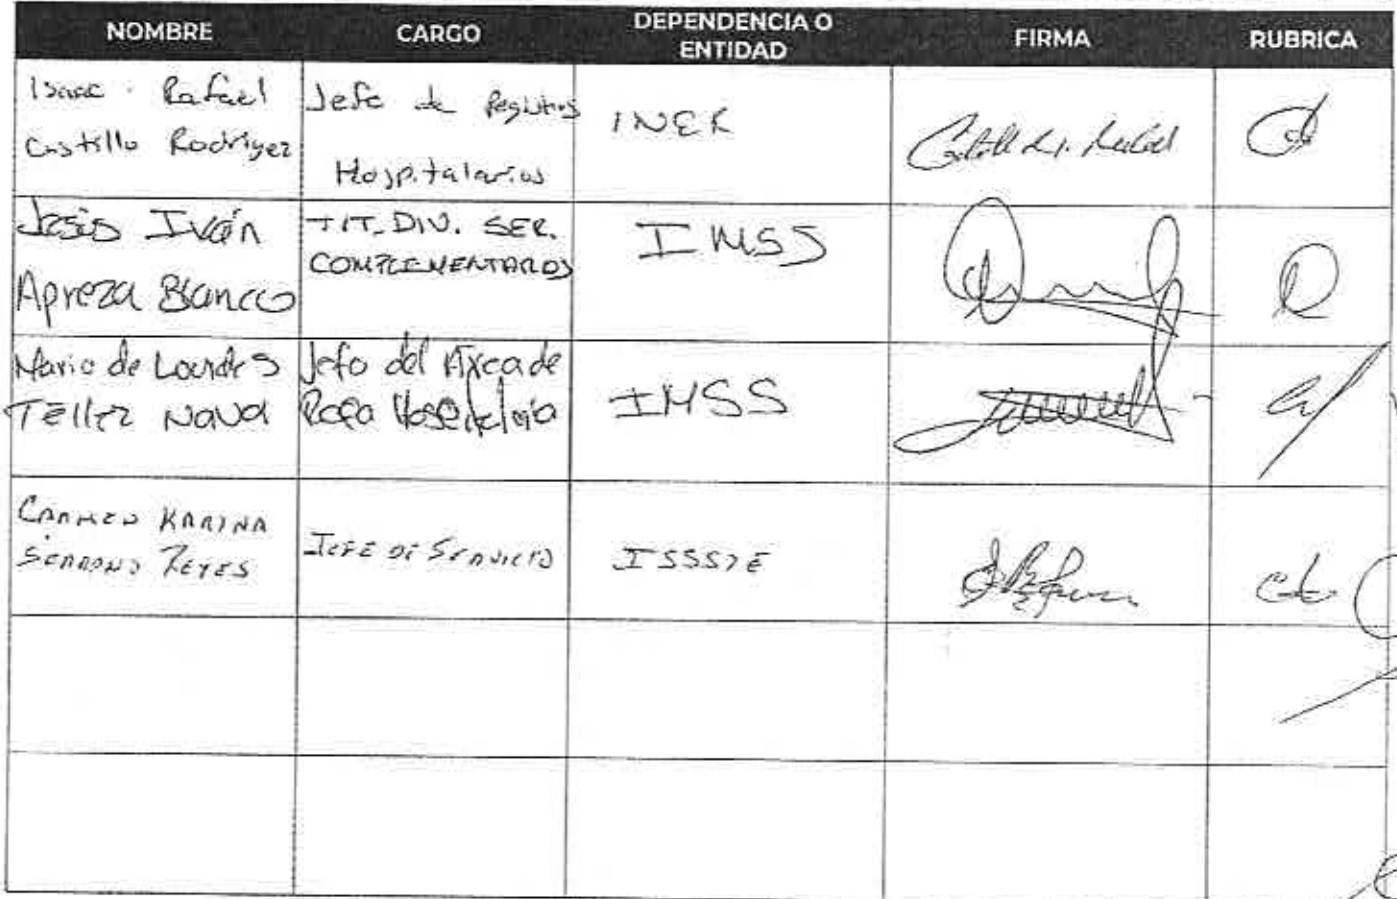 NOMBRE CARGO DEPENDENCIA O ENTIDAD FIRMA RUBRICA
Isaac Rafael
Castillo Rodriguez
Jefe de Registros
Hospitalarios
INER
Jesús Iván
Apreza Blanco
TIT. DIV. SER.
COMPLEMENTARIOS
IMSS
Maria de Lourdes
Téllez Nava
Jefa del Area de
Ropa Hospitalaria
IMSS
CARMEN KARINA
SERRANO REYES
JEFE DE SERVICIO
ISSSTE